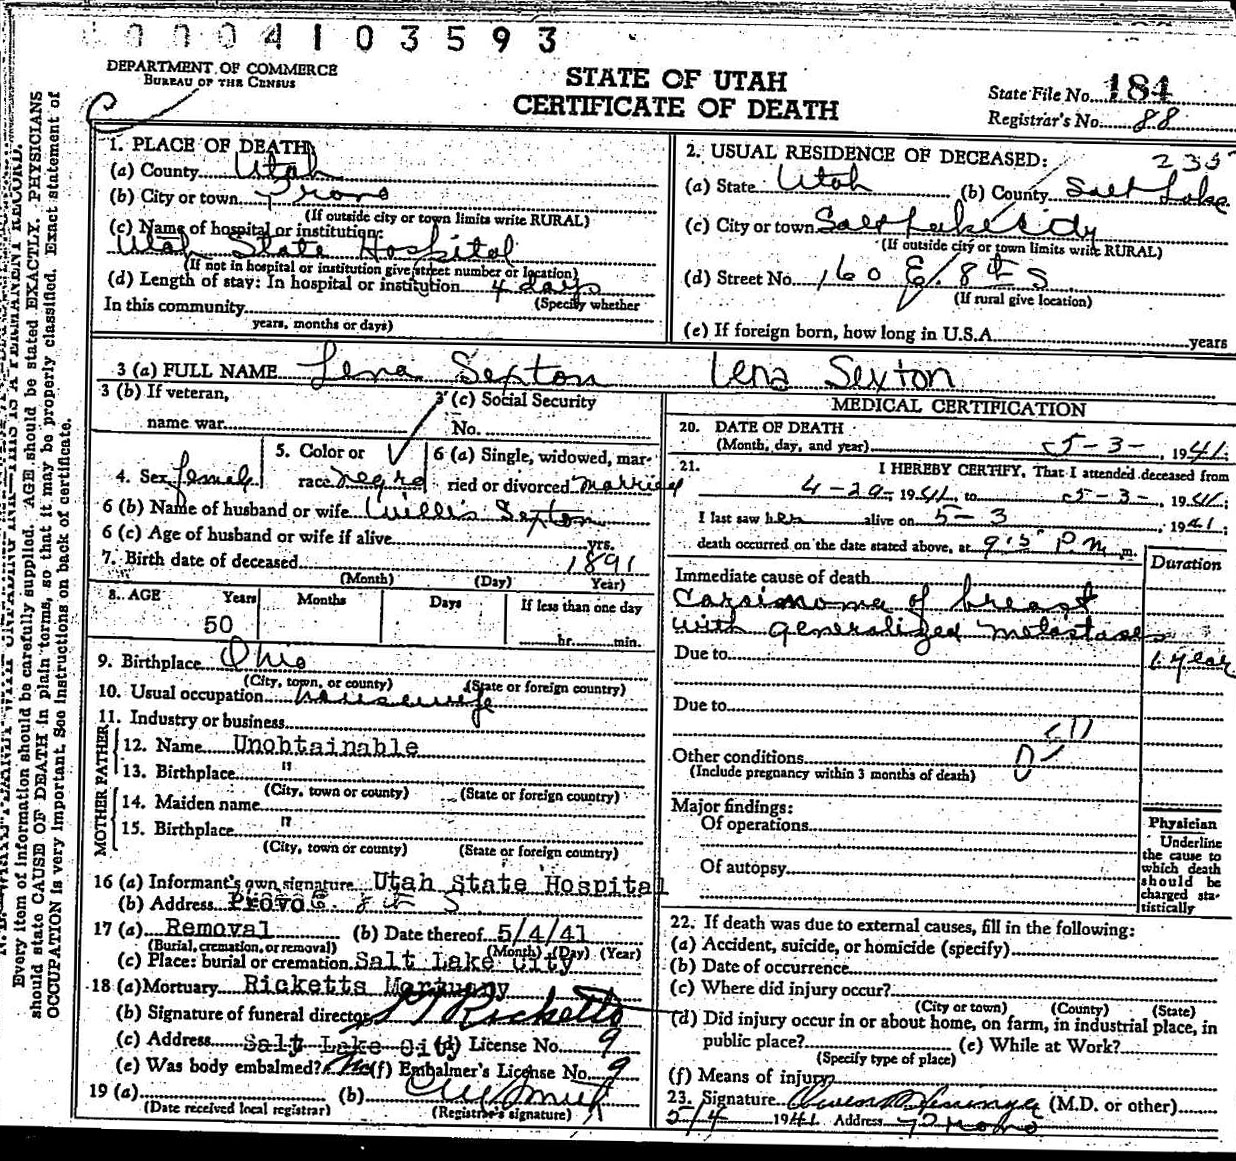 0004103593
DEPARTMENT OF COMMERCE
BUREAU OF THE CENSUS
STATE OF UTAH
CERTIFICATE OF DEATH
State File No. 184
Registrar's No. 88
Every item of information should be carefully supplied. AGE should be stated EXACTLY. PHYSICIANS
should state CAUSE OF DEATH in plain terms, so that it may be properly classified. Exact statement of
OCCUPATION is very important. See instructions on back of certificate.
1. PLACE OF DEATH
(a) County Utah
(b) City or town Provo
(If outside city or town limits write RURAL)
(c) Name of hospital or institution:
Utah State Hospital
(If not in hospital or institution give street number or location)
(d) Length of stay: In hospital or institution 4 days
(Specify whether
In this community
years, months or days)
2. USUAL RESIDENCE OF DECEASED:
(a) State Utah (b) County Salt Lake
(c) City or town Salt Lake City
(If outside city or town limits write RURAL)
(d) Street No. 160 E. 8th S
(If rural give location)
(e) If foreign born, how long in U.S.A. years
3 (a) FULL NAME Lena Sexton Lena Sexton
3 (b) If veteran,
name war
3 (c) Social Security
No.
4. Sex female
5. Color or
race negro
6 (a) Single, widowed, mar-
ried or divorced married
6 (b) Name of husband or wife Willis Sexton
6 (c) Age of husband or wife if alive yrs.
7. Birth date of deceased 1891
(Month) (Day) Year)
8. AGE Years Months Days If less than one day
50 hr. min.
9. Birthplace Ohio
(City, town, or county) (State or foreign country)
10. Usual occupation housewife
11. Industry or business
FATHER
12. Name Unobtainable
13. Birthplace "
(City, town or county) (State or foreign country)
MOTHER
14. Maiden name
15. Birthplace "
(City, town or county) (State or foreign country)
16 (a) Informant's own signature Utah State Hospital
(b) Address Provo
17 (a) Removal (b) Date thereof 5/4/41
(Burial, cremation, or removal) (Month) (Day) (Year)
(c) Place: burial or cremation Salt Lake City
18 (a) Mortuary Ricketts Mortuary
(b) Signature of funeral director Ricketts
(c) Address Salt Lake City (d) License No. 9
(e) Was body embalmed? (f) Embalmer's License No. 9
19 (a) (b)
(Date received local registrar) (Registrar's signature)
MEDICAL CERTIFICATION
20. DATE OF DEATH
(Month, day, and year) 5-3-, 1941;
21. I HEREBY CERTIFY, That I attended deceased from
4-29-, 1941, to 5-3-, 1941;
I last saw her alive on 5-3, 1941;
death occurred on the date stated above, at P.M. m.
Duration
Immediate cause of death
Carsinoma of breast
with generalized metastases
Due to 1 year
Due to
Other conditions
(Include pregnancy within 3 months of death)
Major findings:
Of operations
Of autopsy
Physician
Underline
the cause to
which death
should be
charged sta-
tistically
22. If death was due to external causes, fill in the following:
(a) Accident, suicide, or homicide (specify)
(b) Date of occurrence
(c) Where did injury occur?
(City or town) (County) (State)
(d) Did injury occur in or about home, on farm, in industrial place, in
public place? (e) While at Work?
(Specify type of place)
(f) Means of injury
23. Signature (M.D. or other)
5/4 1941 Address Provo